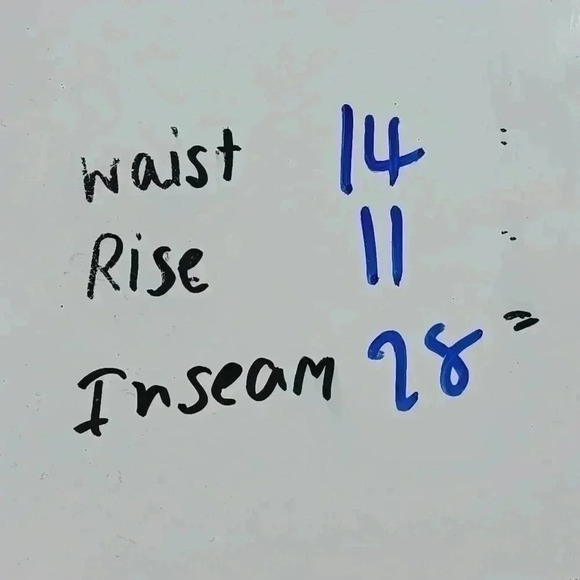 waist 14 :
Rise 11 ..
Inseam 28 =